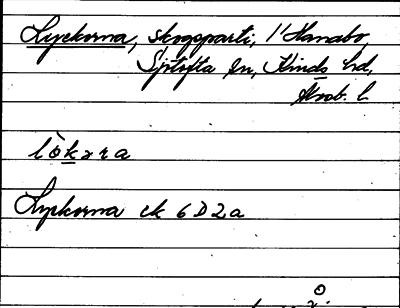 Lyckorna, skogsparti, 1/1 Hanabo,
Sjötofta sn, Kinds hd,
Älvsb. l.
lò̀kɘra
Lyckorna ek 6D2a